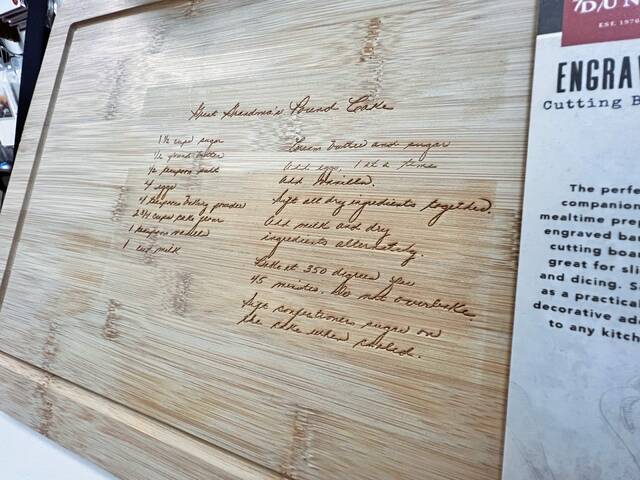 Great Grandma's Pound Cake
1 ½ cups sugar
½ pound butter
½ teaspoon salt
4 eggs
4 teaspoons baking powder
2 ¾ cups cake flour
1 teaspoon vanilla
1 cup milk
Cream butter and sugar
Add eggs, 1 at a time
Add Vanilla.
Sift all dry ingredients together.
Add milk and dry
ingredients alternately.
Bake at 350 degrees for
45 minutes. Do not overbake.
Sift confectioners sugar on
the cake when cooled.
EST. 1976
ENGRAV
Cutting B
The perfe
companion
mealtime prep
engraved ba
cutting boar
great for sli
and dicing. S
as a practical
decorative ad
to any kitch